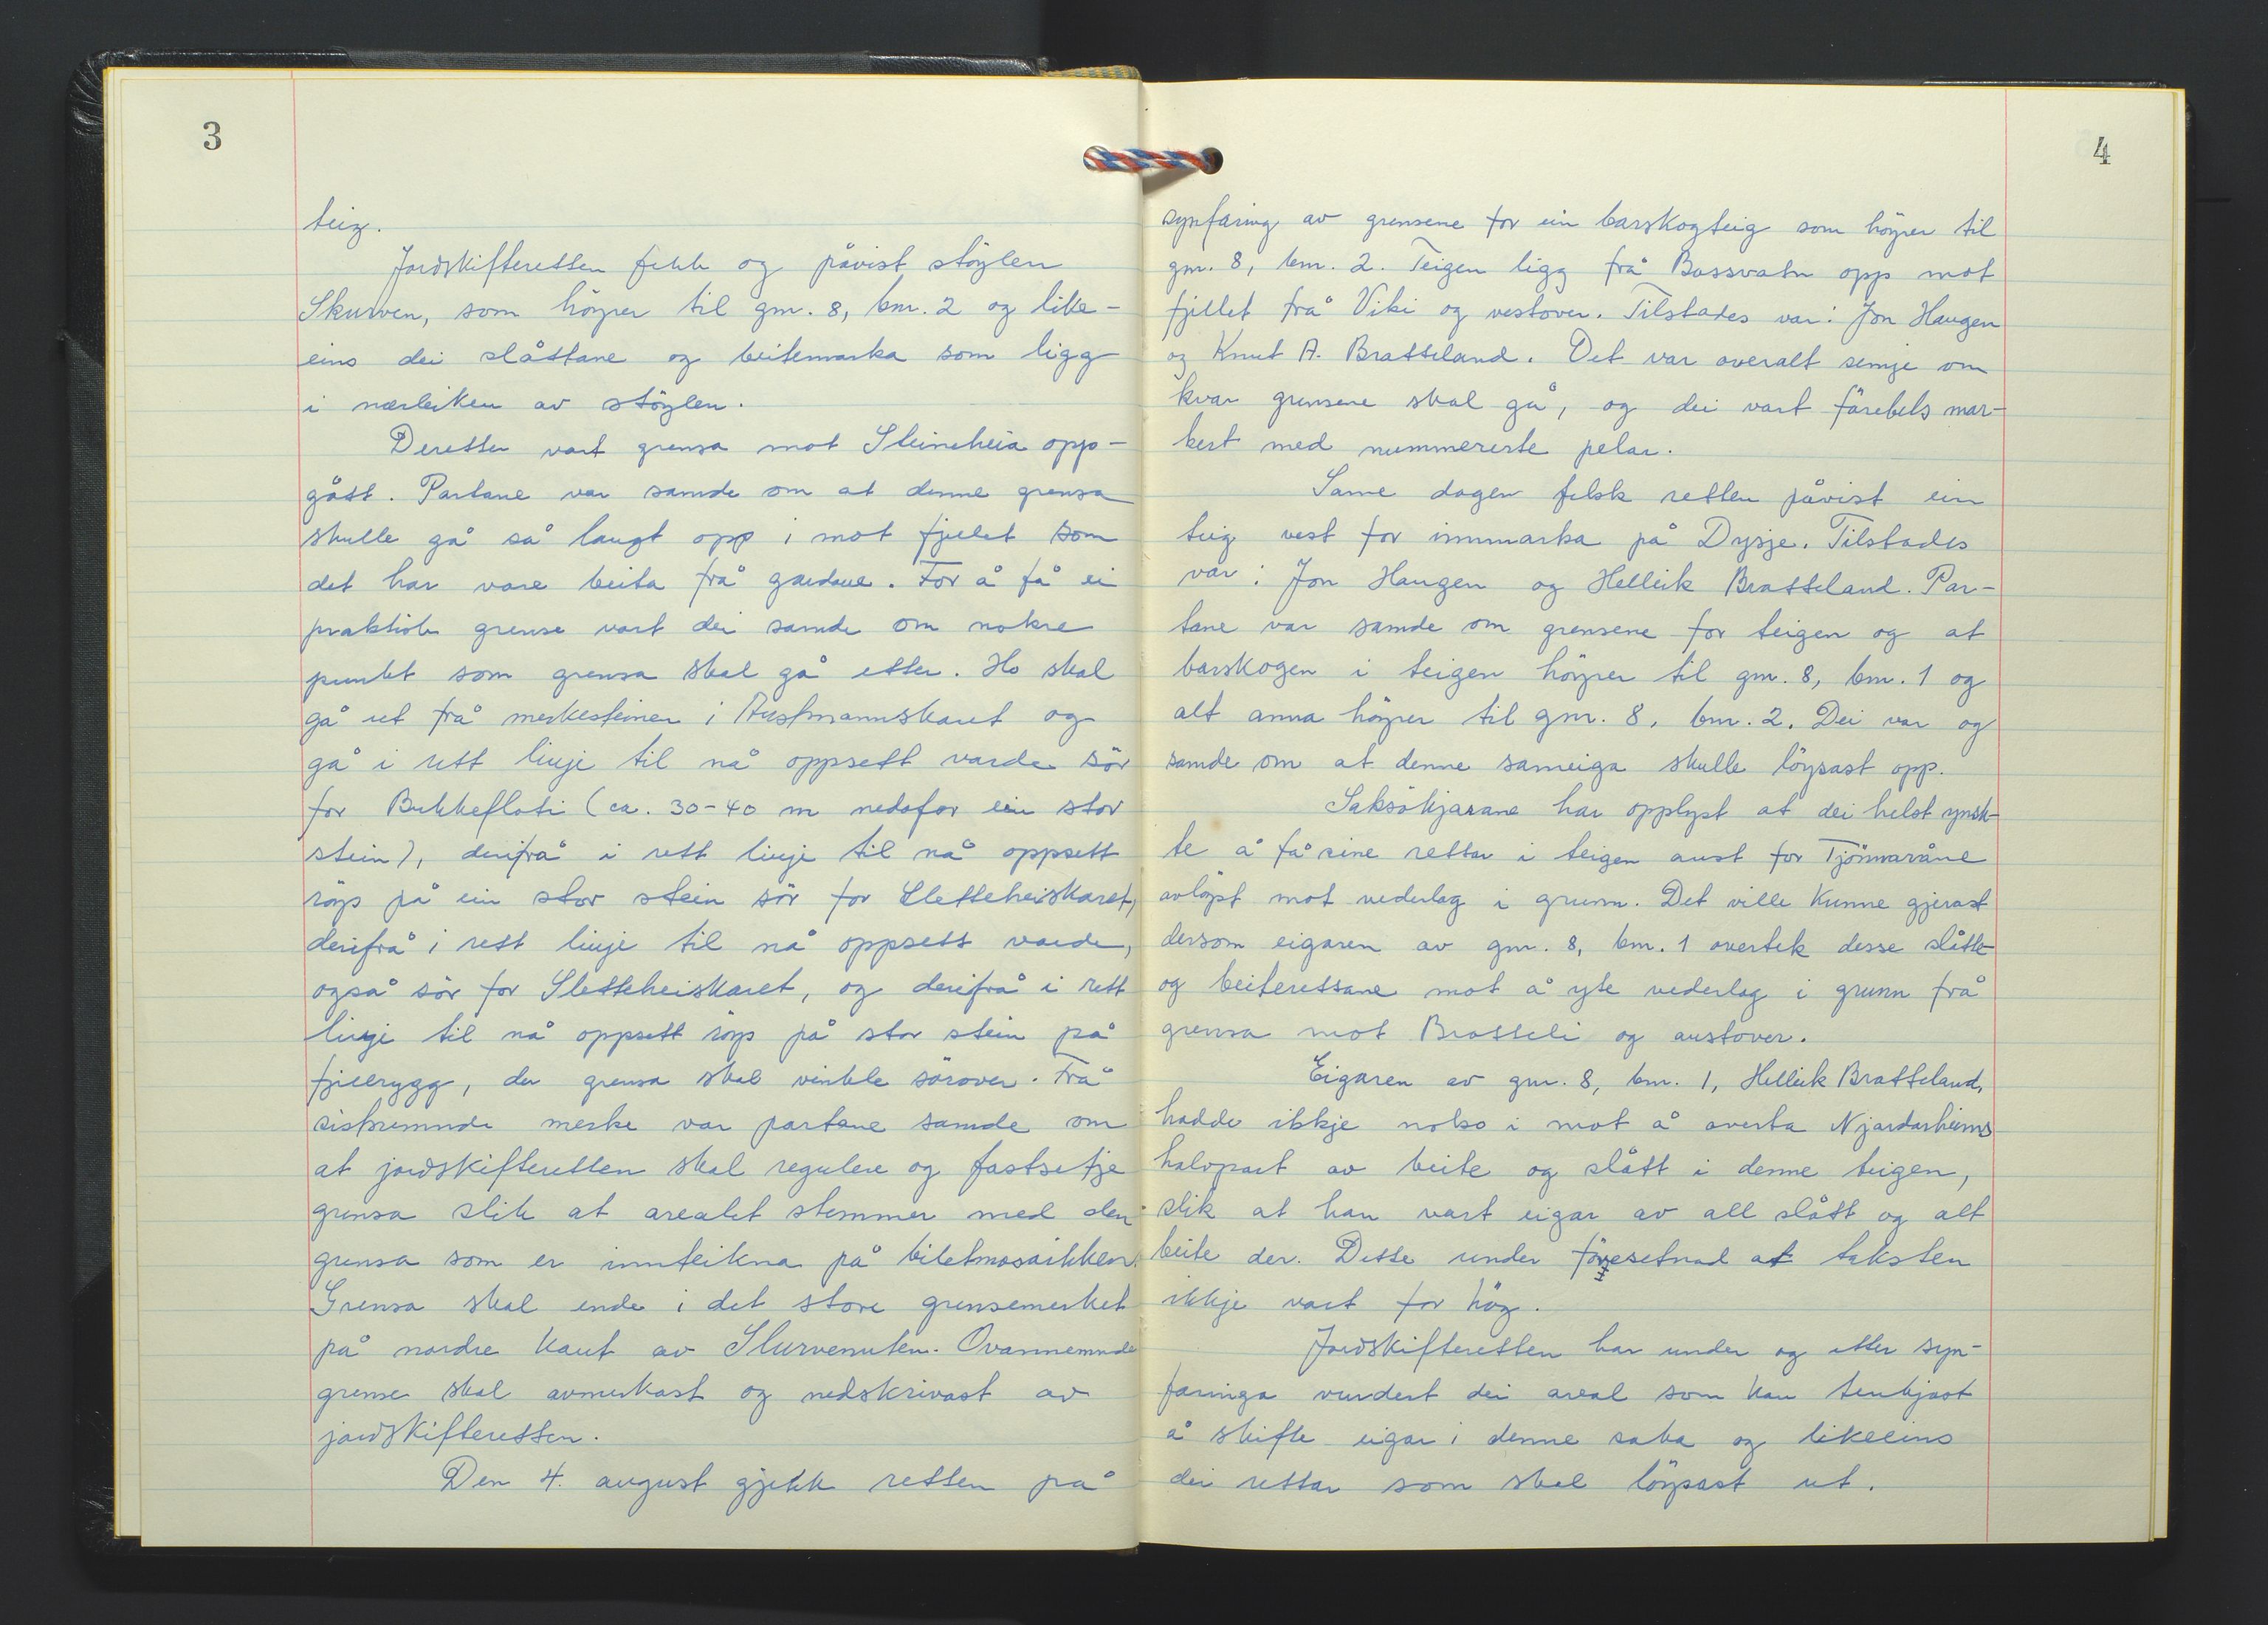 3
teig.
Jordskifteretten fekk og påvist stöylen
Skurven, som höyrer til gnr. 8, bnr. 2 og like-
eins dei slåttane og beitemarka som ligg
i nærleiken av stöylen.
Deretter vart grensa mot Steineheia opp-
gått. Partane var samde om at denne grensa
skulle gå så langt opp i mot fjellet som
det har vore beita frå gardane. For å få ei
praktisk grense vart dei samde om nokre
punkt som grensa skal gå etter. Ho skal
gå ut frå merkesteinen i Austmannskaret og
gå i rett linje til nå oppsett varde sör
for Bukkefloti (ca. 30-40 m nedafor ein stor
stein), derifrå i rett linje til nå oppsett
röys på ein stor stein sör for Sletteheiskaret,
derifrå i rett linje til nå oppsett varde,
også sör for Sletteheiskaret, og derifrå i rett
linje til nå oppsett röys på stor stein på
fjellrygg, der grensa skal vinkle sörover. Frå
sistnemnde merke var partane samde om
at jordskifteretten skal regulere og fastsetje
grensa slik at arealet stemmer med den
grensa som er innteikna på biletmosaikken.
Grensa skal ende i det store grensemerket
på nordre kant av Skurvenuten. Ovannemnde
grense skal avmerkast og nedskrivast av
jordskifteretten.
Den 4. august gjekk retten på
4
synfaring av grensene for ein barskogteig som höyrer til
gnr. 8, bnr. 2. Teigen ligg frå Bossvatn opp mot
fjellet frå Viki og vestover. Tilstades var: Jon Haugen
og Knut A. Bratteland. Det var overalt semje om
kvar grensene skal gå, og dei vart förebels mar-
kert med nummererte pelar.
Same dagen fekk retten påvist ein
teig vest for innmarka på Dysje. Tilstades
var: Jon Haugen og Helleik Bratteland. Par-
tane var samde om grensene for teigen og at
barskogen i teigen höyrer til gnr. 8, bnr. 1 og
alt anna höyrer til gnr. 8, bnr. 2. Dei var og
samde om at denne sameiga skulle löysast opp.
Saksökjarane har opplyst at dei helst ynsk-
te å få sine rettar i teigen aust for Tjönnaråne
avlöyst mot vederlag i grunn. Det ville kunne gjerast
dersom eigaren av gnr. 8, bnr. 1 overtek desse slåtte-
og beiterettane mot å yte vederlag i grunn frå
grensa mot Brotteli og austover.
Eigaren av gnr. 8, bnr. 1, Helleik Bratteland,
hadde ikkje noko i mot å overta Njardarheims
halvpart av beite og slått i denne teigen,
slik at han vart eigar av all slått og alt
beite der. Dette under föresetnad at taksten
ikkje vart for hög.
Jordskifteretten har under og etter syn-
faringa vurdert dei areal som kan tenkjast
å skifte eigar i denne saka og likeeins
dei rettar som skal löysast ut.